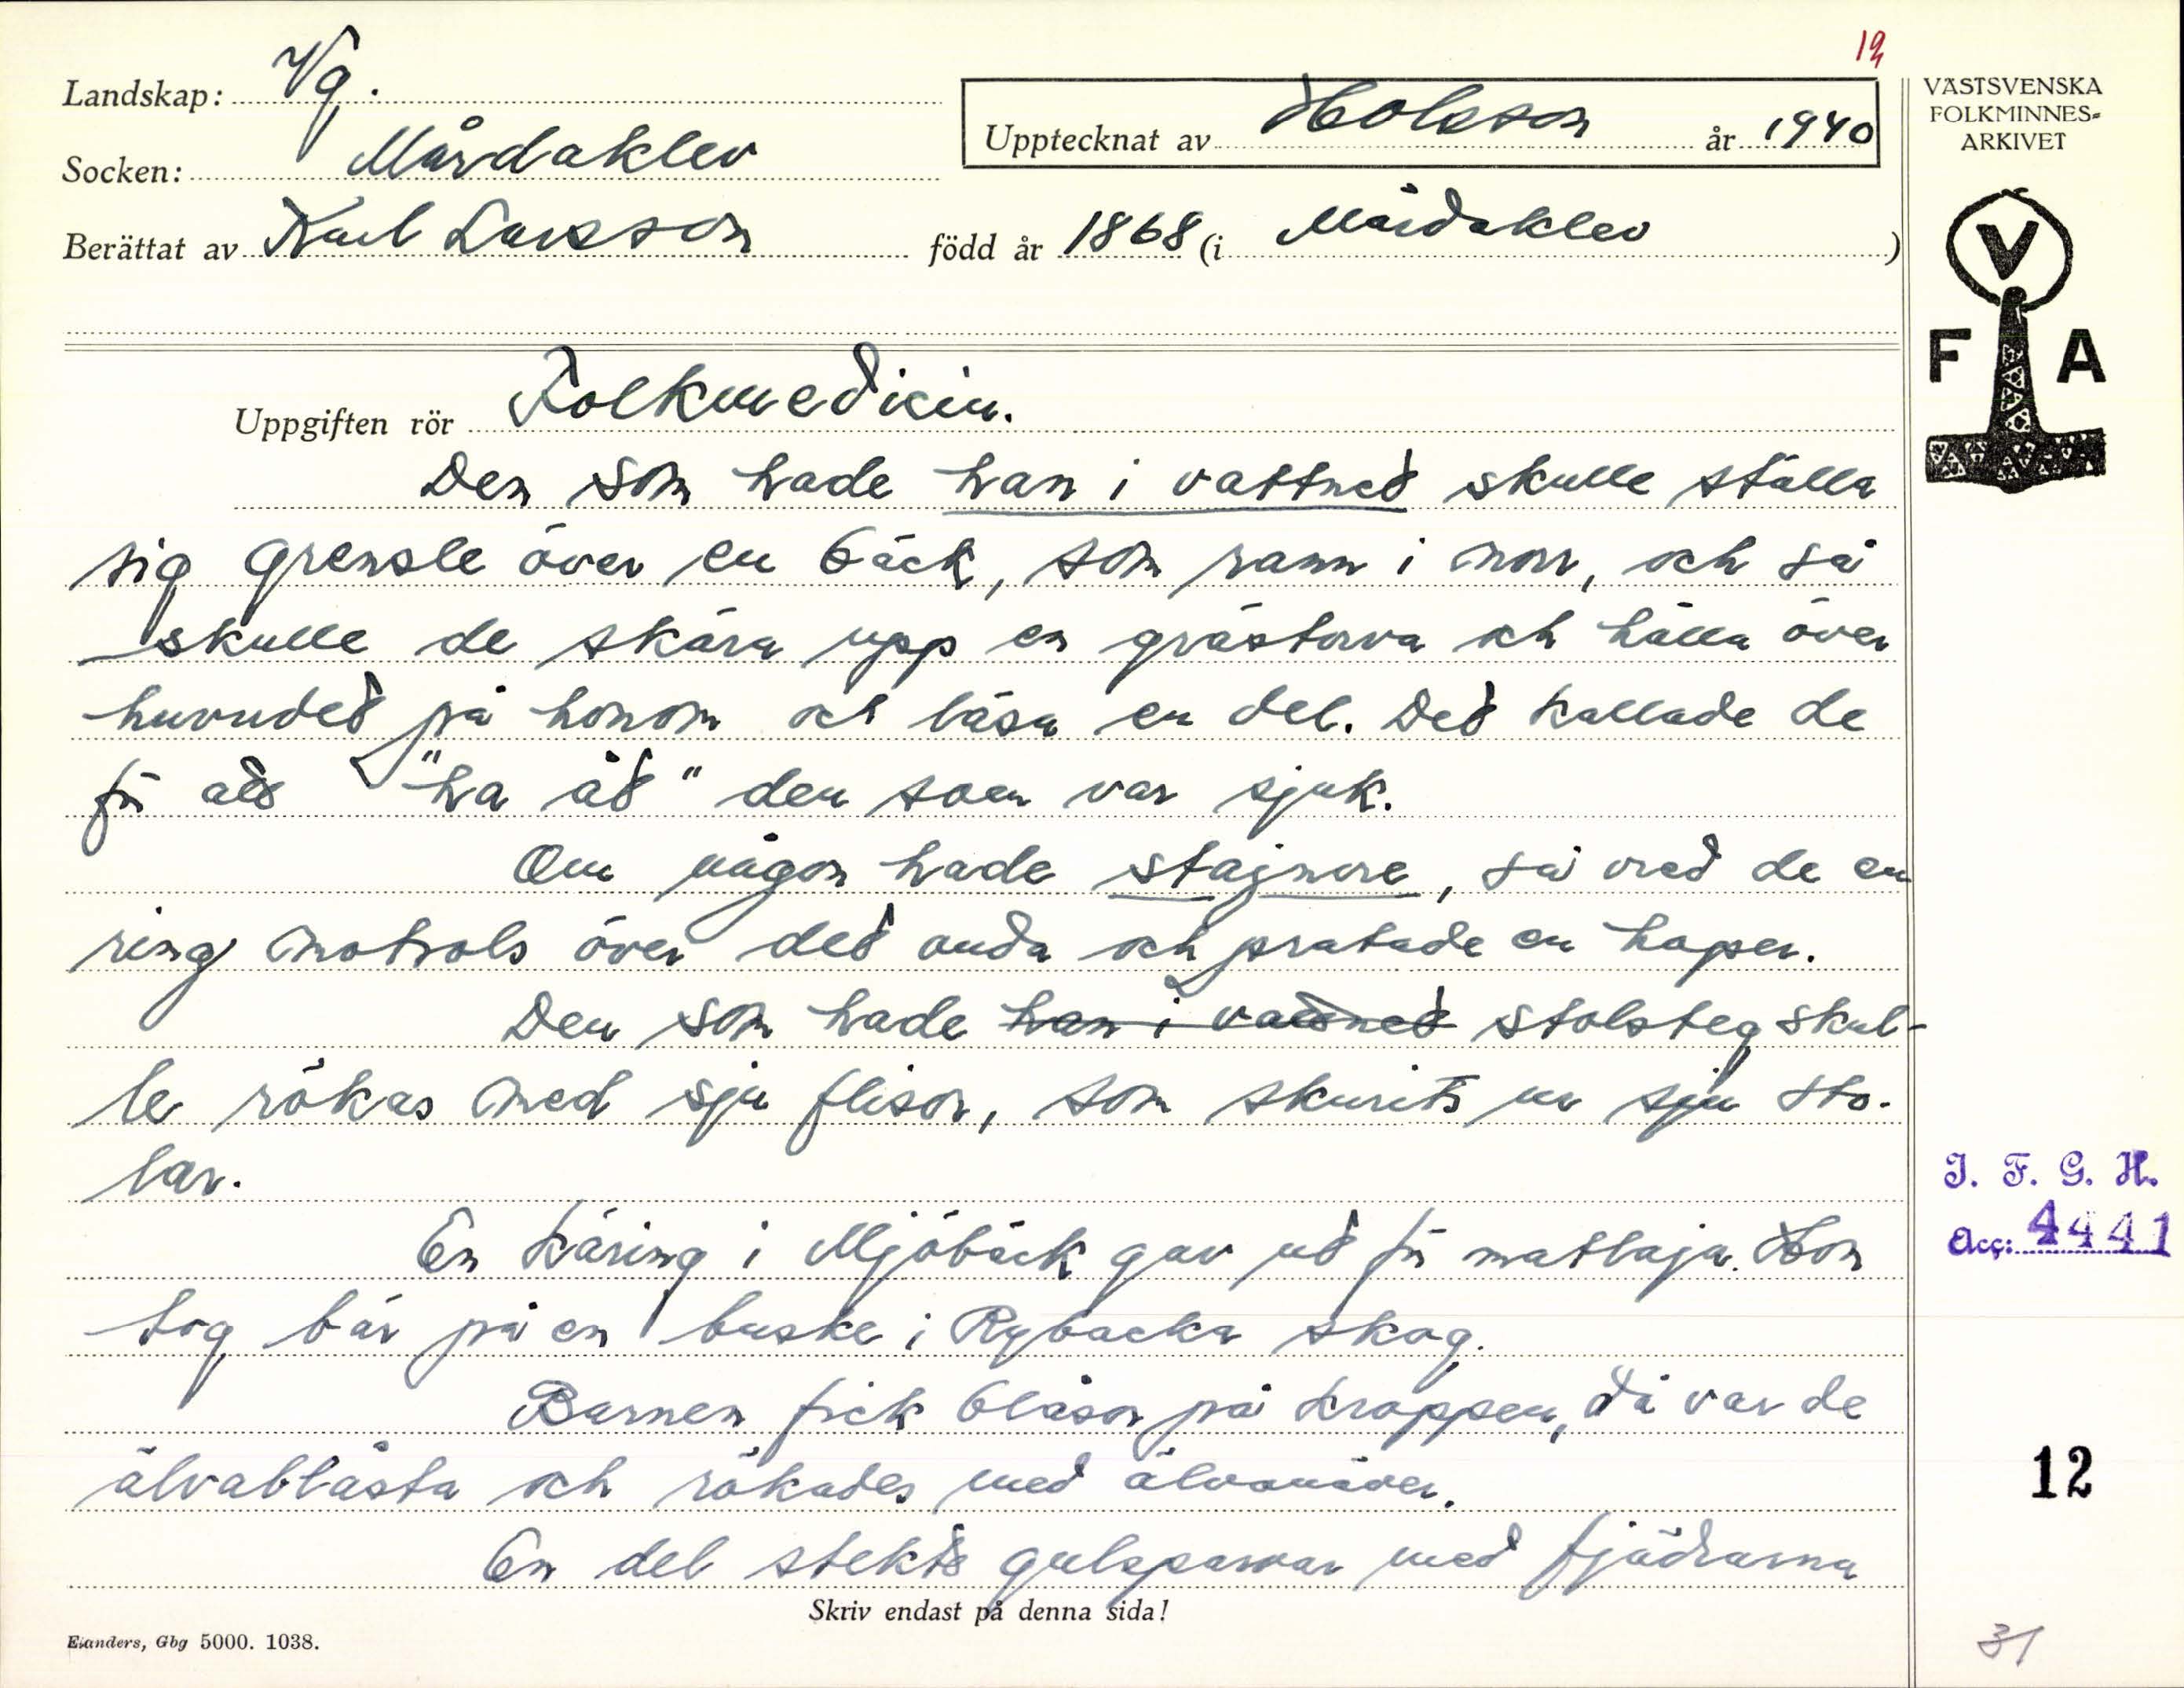 12
Landskap: Vg.
Upptecknat av Holsson år 1940
VÄSTSVENSKA
FOLKMINNES-
ARKIVET
Socken: Mårdaklev
Berättat av Karl Larsson född år 1868 (i Mårdaklev)
V
F A
Uppgiften rör Folkmedicin.
Den som hade han i vattnet skulle ställa
sig grensle över en bäck, som rann i norr, och så
skulle de skära upp en grästorva och hålla över
huvudet på honom och läsa en del. Det kallade de
för att "ha åt" den som var sjuk.
Om någon hade stajnore, så vred de en
ring motsols över det onda och pratade en hoper.
Den som hade han i vattnet stolsteg skul-
le rökas med sju flisor, som skurits ur sju sto-
lar.
En käring i Mjöbäck gav ut för matlaja. Hon
tog bär på en buske i Rybacka skog.
Barnen fick blåsor på kroppen, då var de
älvablåsta och rökades med älvanäver.
En del stekte gulsparvar med fjädrarna
Skriv endast på denna sida!
Elanders, Gbg 5000. 1038.
I. F. G. H.
Acc: 4441
12
31